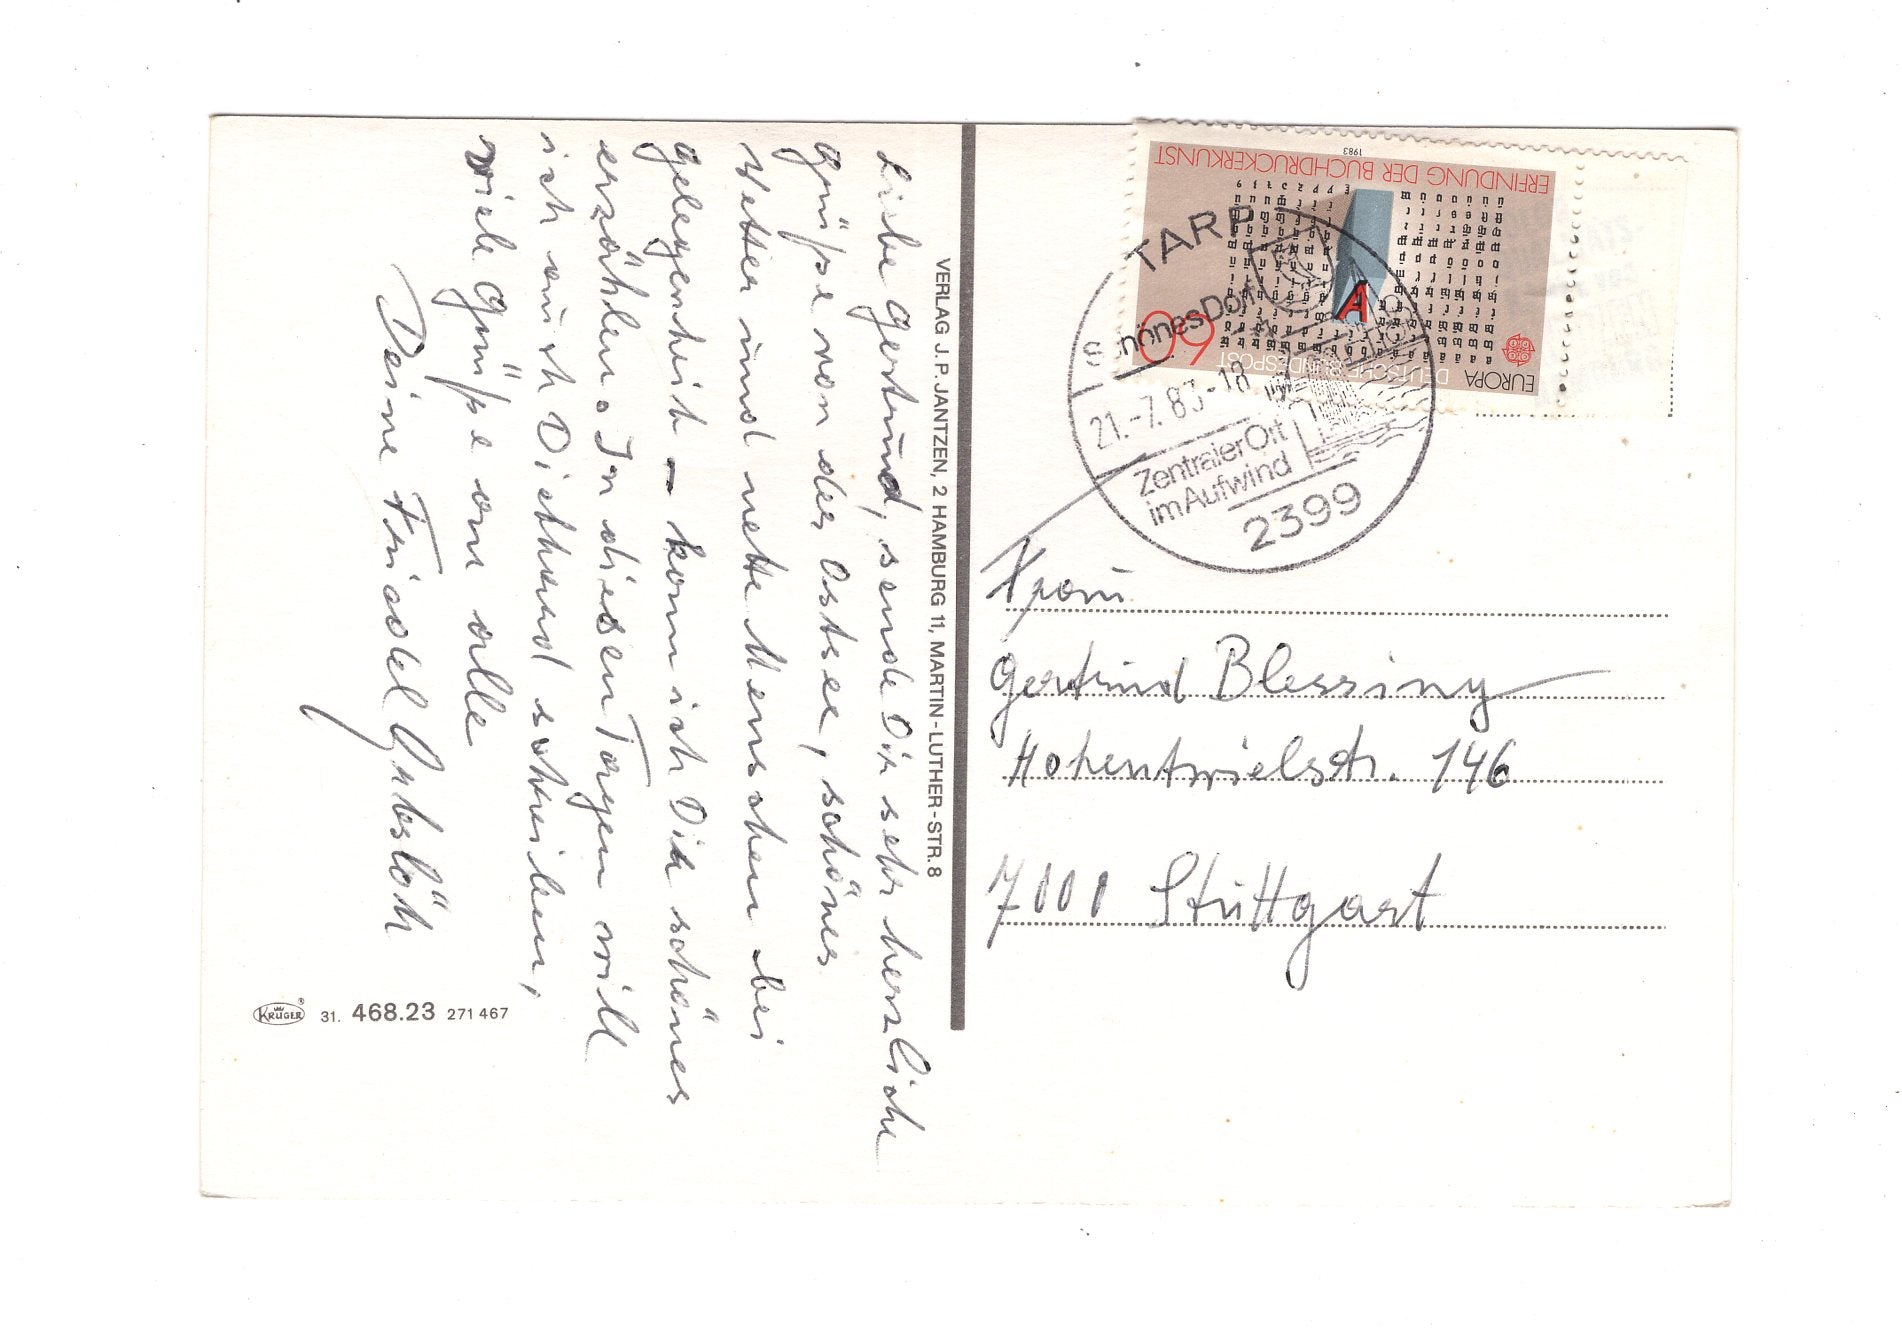 Liebe Gertrud, sende Dir sehr herzliche
Grüße von der Ostsee, schönes
Wetter und nette Menschen bei
Gelegenheit – kann ich Dir schönes
erzählen. In diesen Tagen will
ich auch Diethard schreiben,
viele Grüße an alle
Deine Friedel
VERLAG J. P. JANTZEN, 2 HAMBURG 11, MARTIN-LUTHER-STR. 8
KRÜGER
31. 468.23 271 467
1983
ERFINDUNG DER BUCHDRUCKERKUNST
A
60
DEUTSCHE BUNDESPOST
EUROPA
CEPT
TARP
Schönes Dorf
21.-7.83-18
Zentraler Ort
im Aufwind
2399
Frau
Gertrud Blessing
Hohentwielstr. 146
7000 Stuttgart